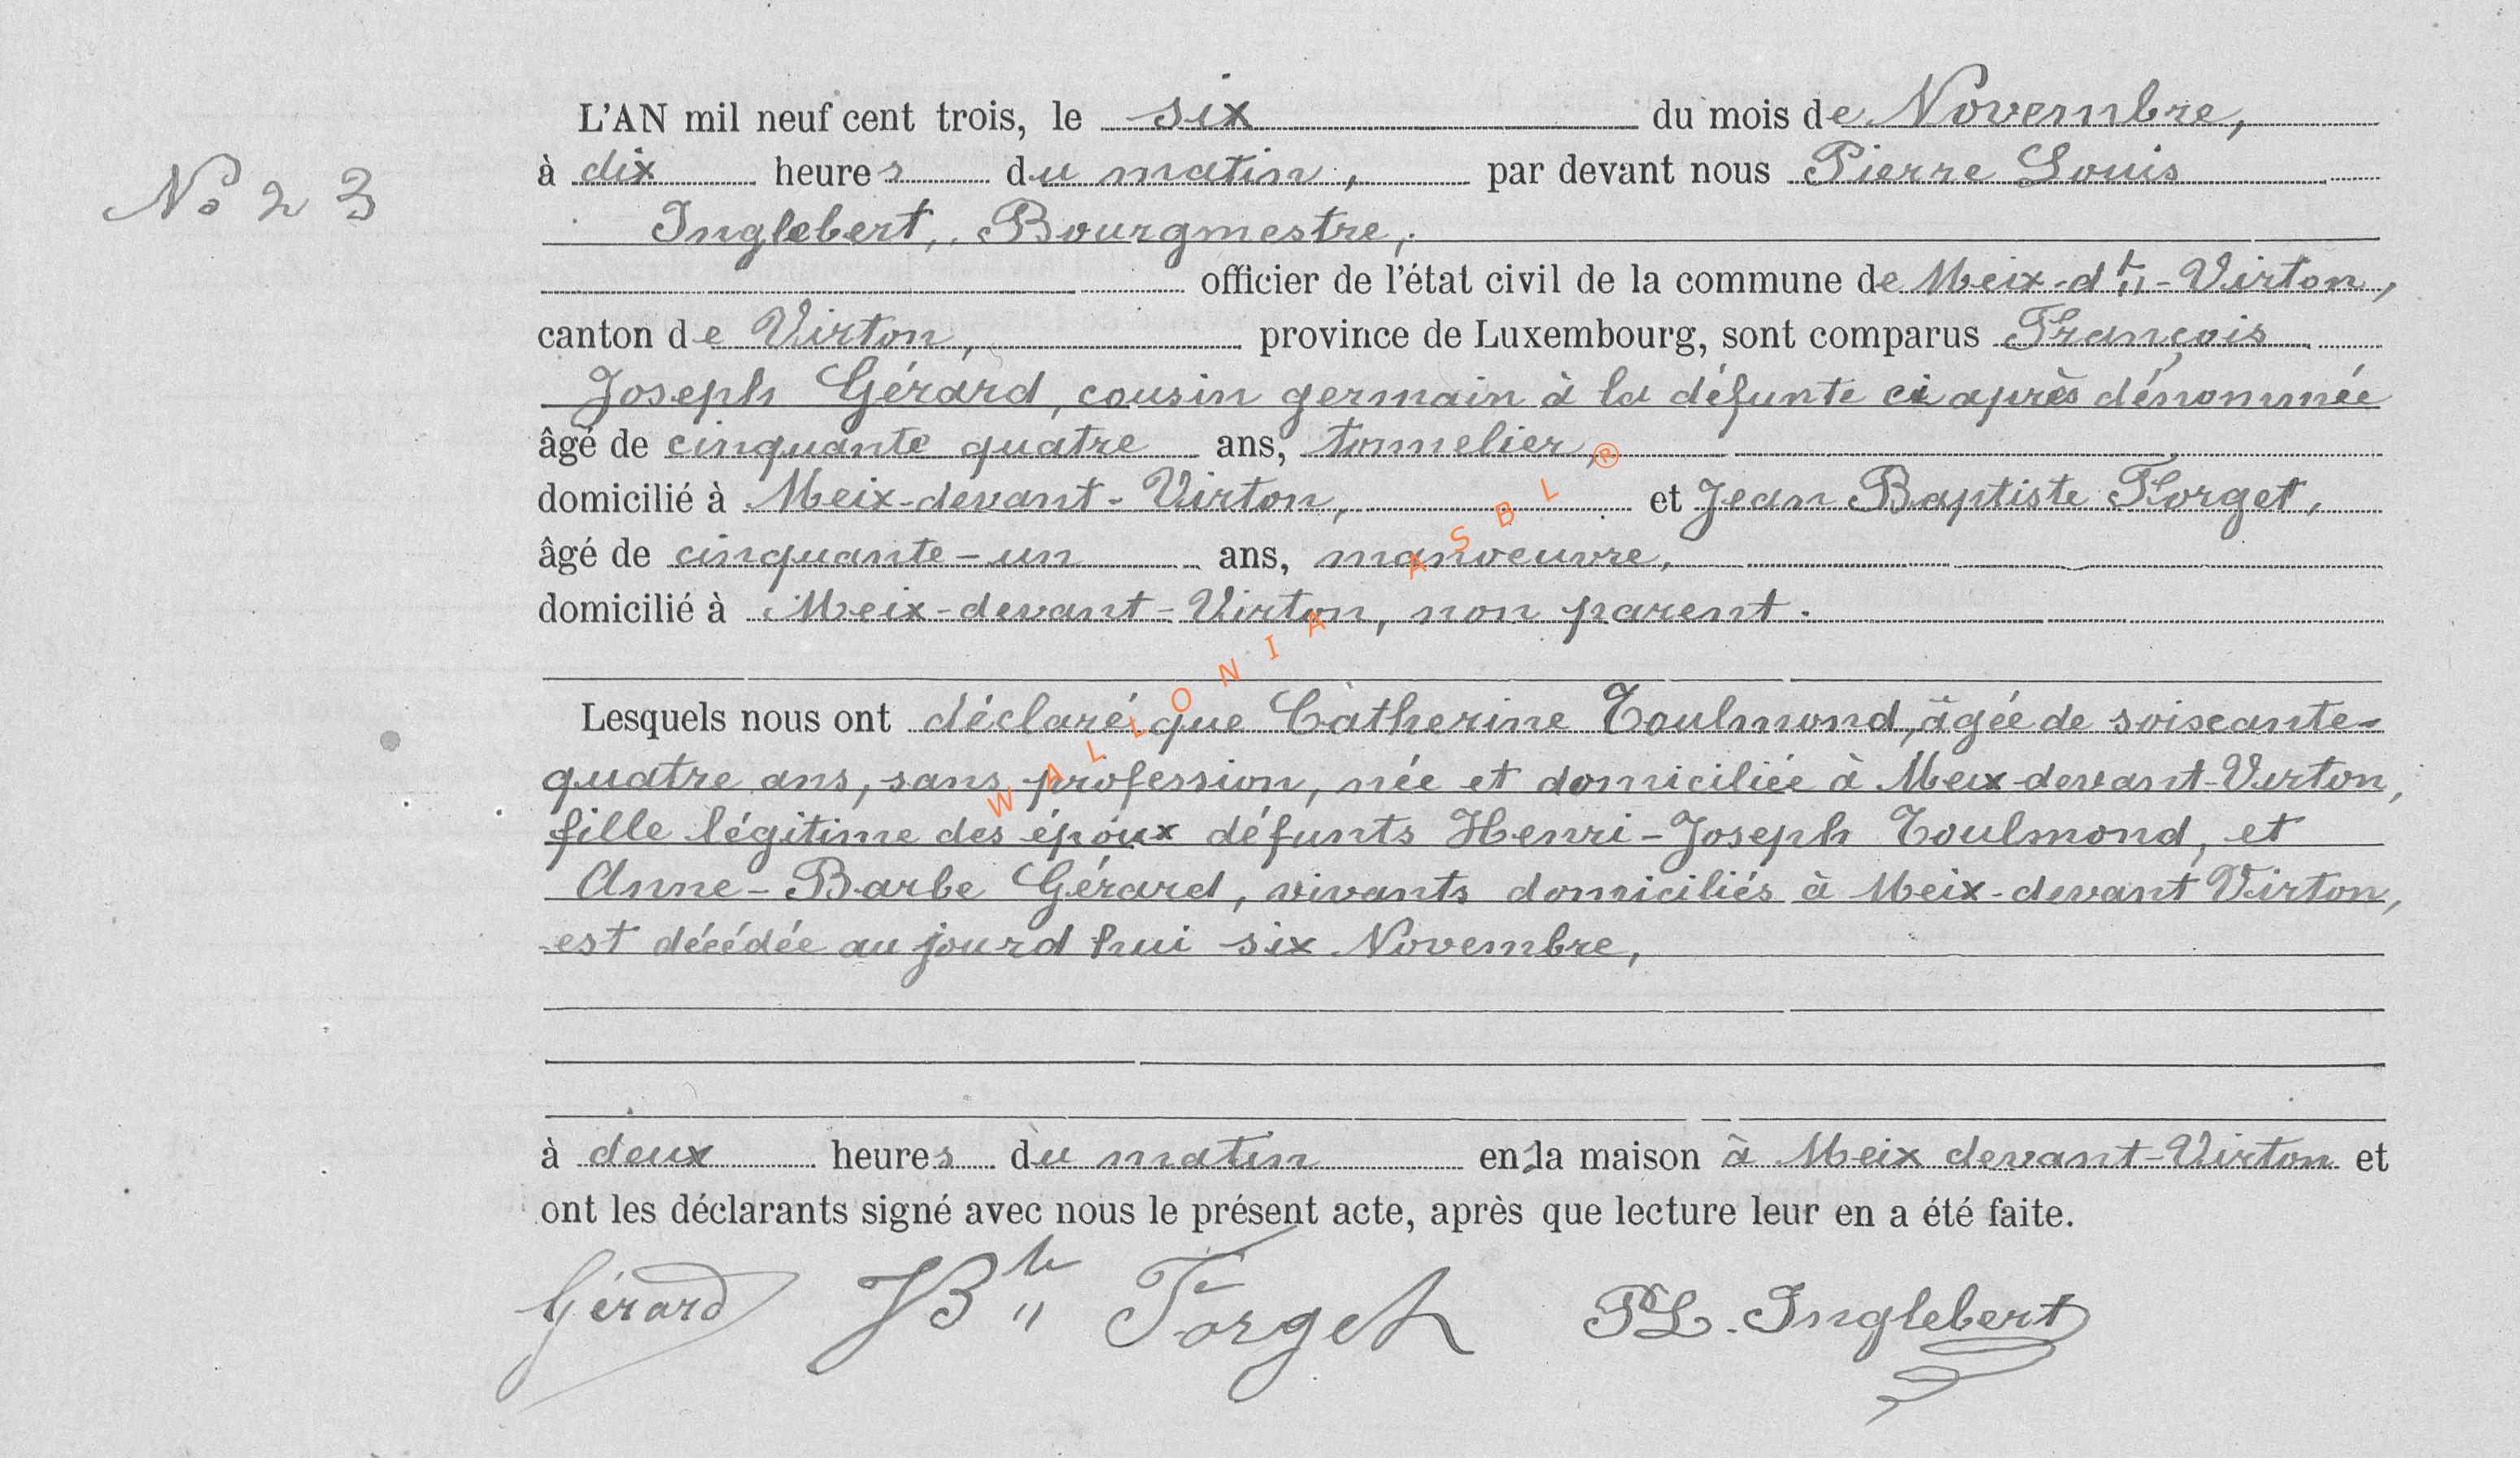 L'AN mil neuf cent trois, le six du mois de Novembre,
No 23
à dix heures du matin, par devant nous Pierre Louis
Inglebert, Bourgmestre,
officier de l'état civil de la commune de Meix-dt-Virton,
canton de Virton, province de Luxembourg, sont comparus François
Joseph Gérard, cousin germain à la défunte ci après dénommée
âgé de cinquante quatre ans, tonnelier,
domicilié à Meix-devant-Virton, et Jean Baptiste Forget,
âgé de cinquante-un ans, manoeuvre,
domicilié à Meix-devant-Virton, non parent.
Lesquels nous ont déclaré que Catherine Toulmond, âgée de soixante-
quatre ans, sans profession, née et domiciliée à Meix-devant-Virton,
fille légitime des époux défunts Henri-Joseph Toulmond, et
Anne-Barbe Gérard, vivants domiciliés à Meix-devant Virton,
est décédée aujourd'hui six Novembre,
à deux heures du matin en la maison à Meix devant-Virton et
ont les déclarants signé avec nous le présent acte, après que lecture leur en a été faite.
Gérard JBte Forget PL. Inglebert
WALLONIA ASBL ®